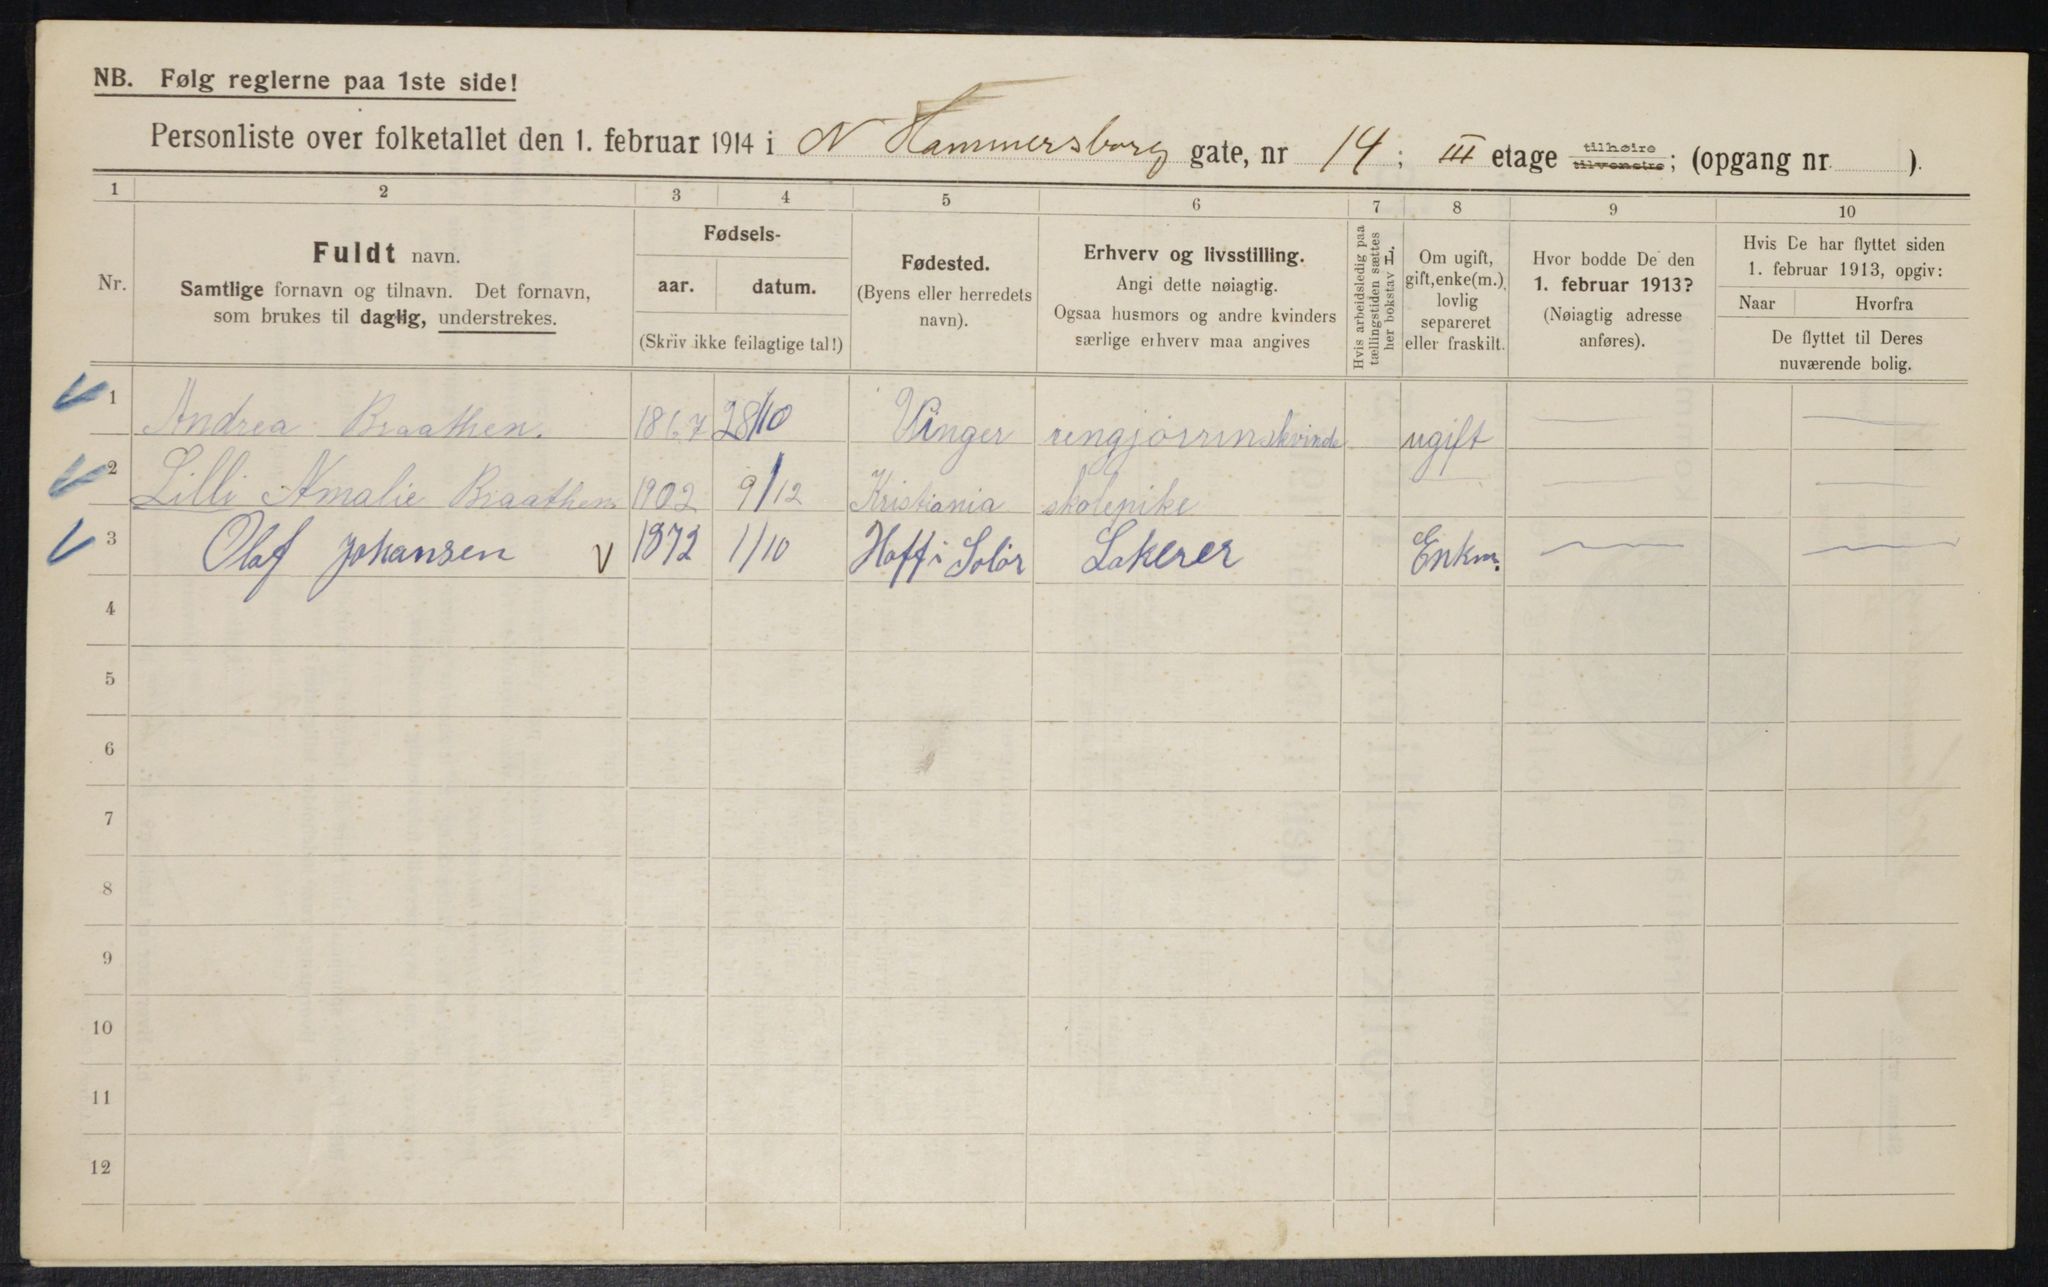 NB. Følg reglerne paa 1ste side!
Personliste over folketallet den 1. februar 1914 i N Hammersborg gate, nr 14; III etage tilhøire tilvenstre; (opgang nr. ).
1 2 3 4 5 6 7 8 9 10
Nr.
Fuldt navn.
Samtlige fornavn og tilnavn. Det fornavn,
som brukes til daglig, understrekes.
Fødsels-
aar. datum.
(Skriv ikke feilagtige tal!)
Fødested.
(Byens eller herredets
navn).
Erhverv og livsstilling.
Angi dette nøiagtig.
Ogsaa husmors og andre kvinders
særlige erhverv maa angives
Hvis arbeidsledig paa
tællingstiden sættes
her bokstav L.
Om ugift,
gift, enke(m.),
lovlig
separeret
eller fraskilt.
Hvor bodde De den
1. februar 1913?
(Nøiagtig adresse
anføres).
Hvis De har flyttet siden
1. februar 1913, opgiv:
Naar Hvorfra
De flyttet til Deres
nuværende bolig.
1 Andrea Braathen. 1867 28/10 Vinger rengjørrinskvinde ugift
2 Lilli Amalie Braathen 1902 9/12 Kristiania skolepike
3 Olaf Johansen V 1872 1/10 Hoff i Solør Lakerer Enkm.
4
5
6
7
8
9
10
11
12